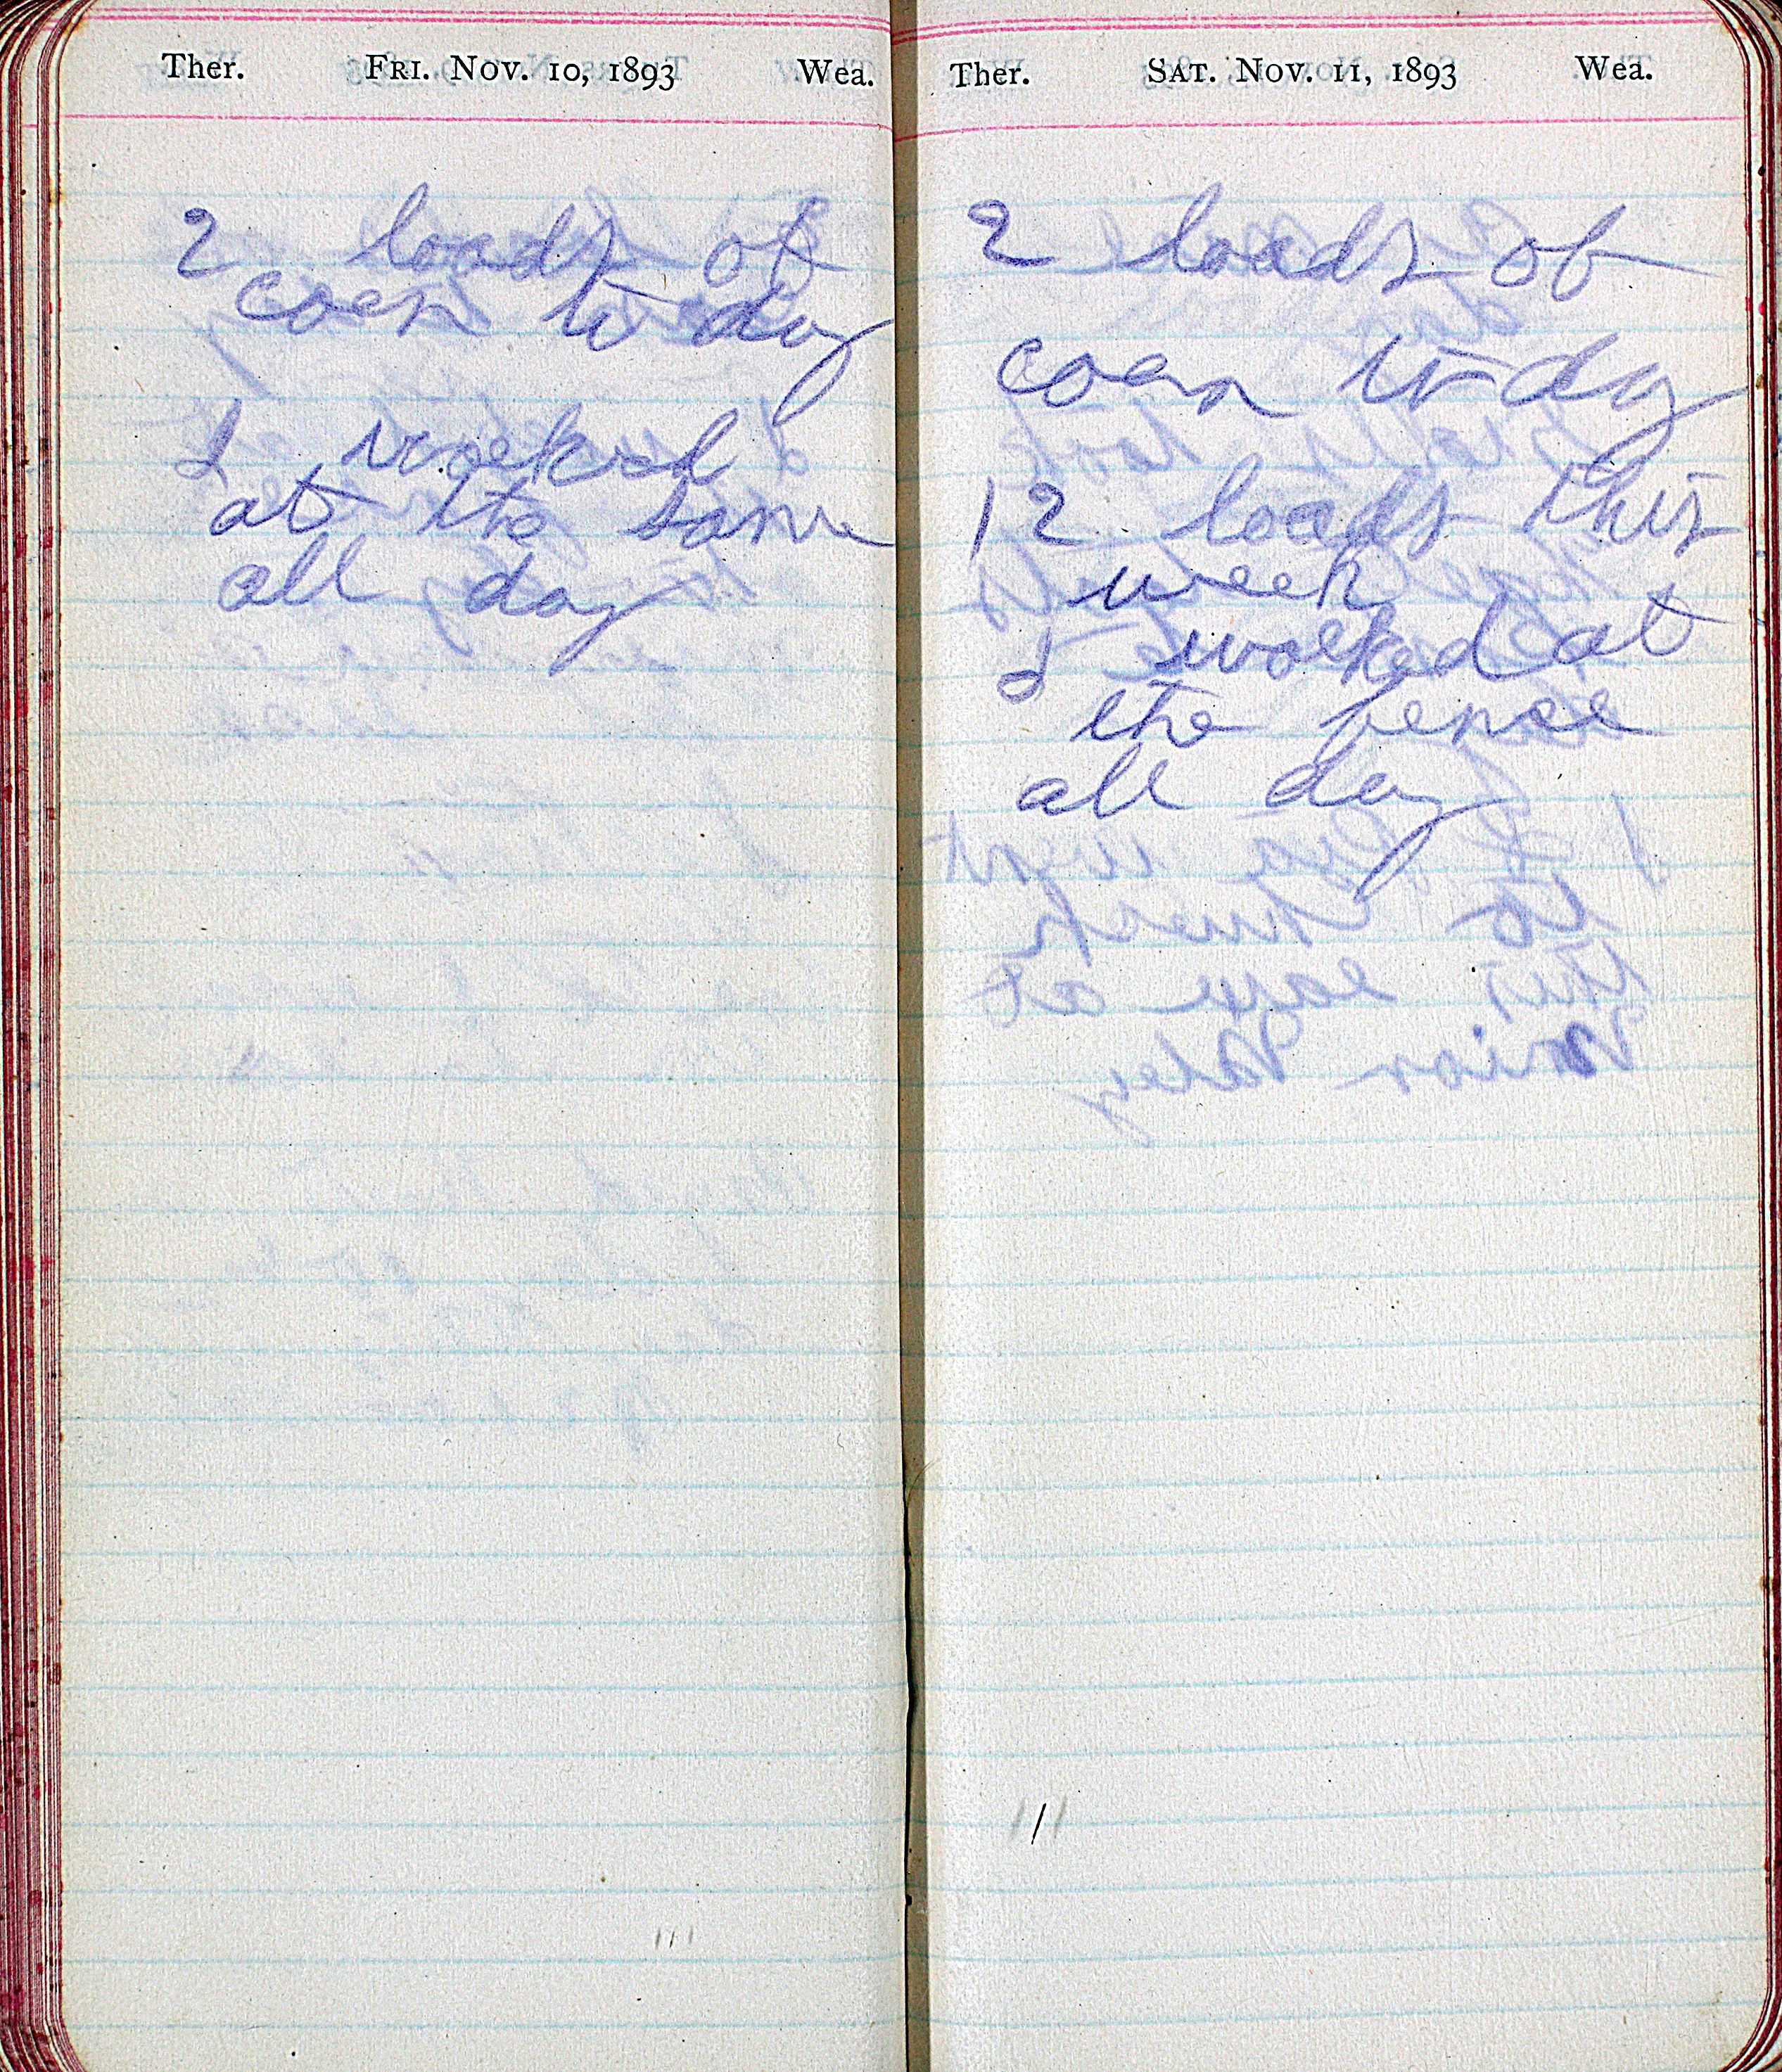 Ther. Fri. Nov. 10, 1893 Wea.
2 loads of
corn to day
I worked
at the same
all day
Ther. Sat. Nov. 11, 1893 Wea.
2 loads of
corn to day
12 loads this
week
I worked at
the fense
all day